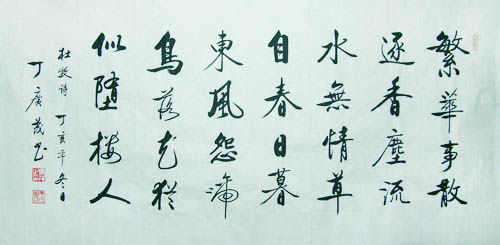 繁華事散
逐香塵流
水無情草
自春日暮
東風怨啼
鳥落花猶
似墮樓人
杜牧詩 丁亥年冬日
丁廣茂书